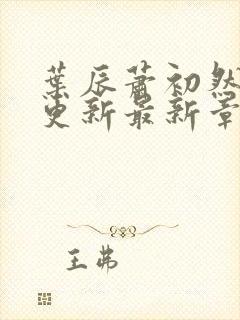 葉辰蕭初然
更新最新章
王弗